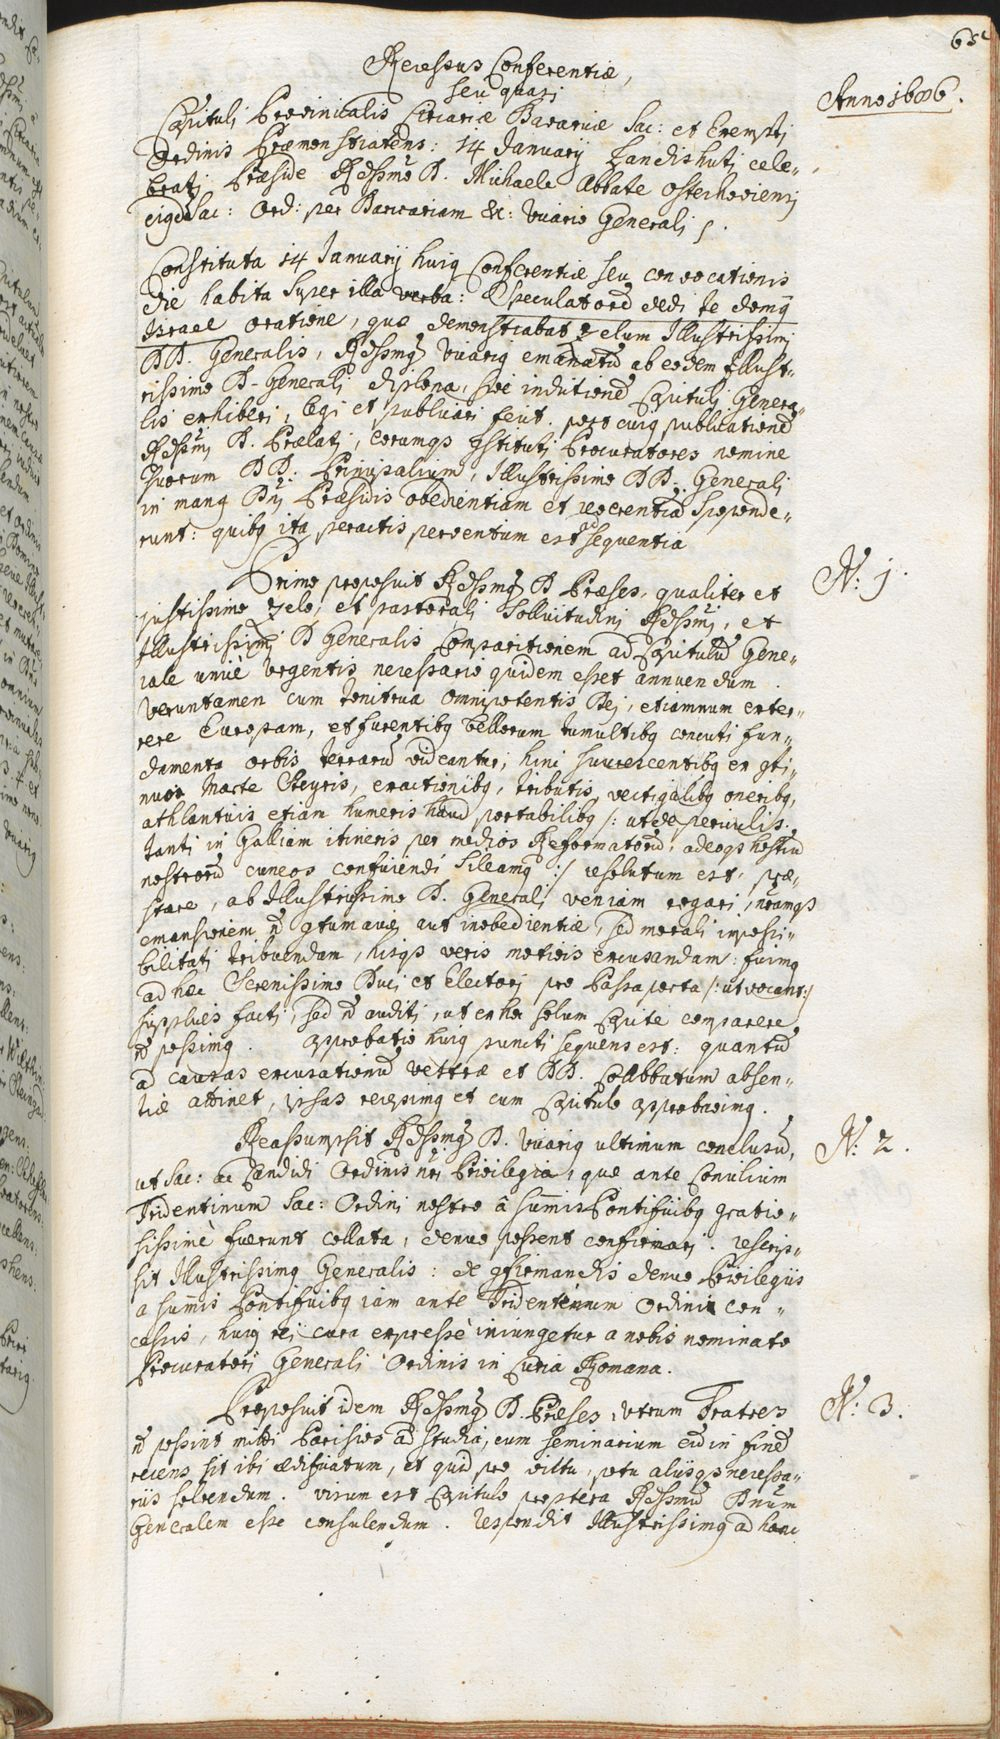 65
Anno 1696.
Recessus Conferentiæ,
seu quasi
Capituli Provincialis Circariæ Bavariæ Sac: et Exempti
Ordinis Præmonstratens: 14 January Landishuti cele-
brati Præside Rdssmo D. Michaele Abbate Osterhoviensi
eigd Sac: Ord: per Bavariam &c: Vicario Generali.
Constituta 14 January huig Conferentiæ seu convocationis
die habita super illa verba: Speculatore dedi te domui
Israel oratione, quæ demonstrabat zelum Illustrissimi
DD. Generalis, Rdssmg Vicarig emanatu ab eodem Illust-
rissimo D. Generali diploma, sive indictione Capituli Genera-
lis exhiberi, legi et publicari fecit. post cuig publicatione
Rdssmi D. Prælati, eorumqs Instituti Procuratores nomine
suorum DD. Principalium, Illustrissimo DD. Generali
in mang Dni Præsidis obedientiam et reverentia spoponde-
runt: quibg ita peractis perventum est ad sequentia
N: 1.
Primo proposuit Rdssmg D. Præses, qualiter et
justissimo zelo, et pastorali sollicitudini Rdssmi, et
Illustrissimi D Generalis Comparitionem ad Capitulu Gene-
rale unice urgentis necessario quidem esset annuendum.
Veruntamen cum tonitrua omnipotentis Dei, etiamnum exter-
rere Europam, et furentibg bellorum tumultibg concuti fun-
damenta orbis terraru videantur, hinc succrescentibg ex gti-
nuo Marte Steyris, exactionibg, tributis, vectigalibg oneribg,
athlanticis etiam humeris haud portabilibg /: ut de periculis
tanti in Galliam itineris per medios Reformatoru, adeoqs hostiu
nostroru cuneos conficiendi sileamg :/ resolutum est, præ-
stare, ab Illustrissimo D. Generali veniam rogari, nramqs
emansionem n gtumaciæ aut inobedientiæ, sed morali impossi-
bilitati tribuendam, hisqs veris motivis excusandam: fuimg
ad hæc Serenissimo Duci et Electori pro Passaporta /: ut vocant :/
supplices facti, sed n auditi, ut ex hoc solum Capite comparere
n possimg. Approbatio huig puncti sequens est: quantu
ad causas excusationu vestræ et DD. CoAbbatum absen-
tiæ attinet, ipsas recepimg et cum Capitulo approbavimg.
N: 2.
Reassumpsit Rdssmg D. Vicarig ultimum conclusu,
ut Sac: ac Candidi Ordinis nri Privilegia, quæ ante Concilium
Tridentinum Sac: Ordini nostro â summis Pontificibg gratio-
sissimè fuerunt collata, denuo possent confirmari. rescrip-
sit Illustrissimg Generalis: de gfirmandis denuo Privilegiis
a summis Pontificibg iam ante Tridentinum Ordini con-
cessis, huig rei cura expressè iniungetur a nobis nominato
Procuratori Generali Ordinis in Curia Romana.
N: 3.
Proposuit idem Rdssmg D. Præses, utrum Fratres
n possint mitti Parisios ad studia, cum seminarium eu in fine
recens sit ibi ædificatum, et quid pro victu, potu aliisqs necessa-
riis solvendum. visum est Capitulo propterea Rdssmu Dnum
Generalem esse consulendum. respondit Illustrissimg ad hanc